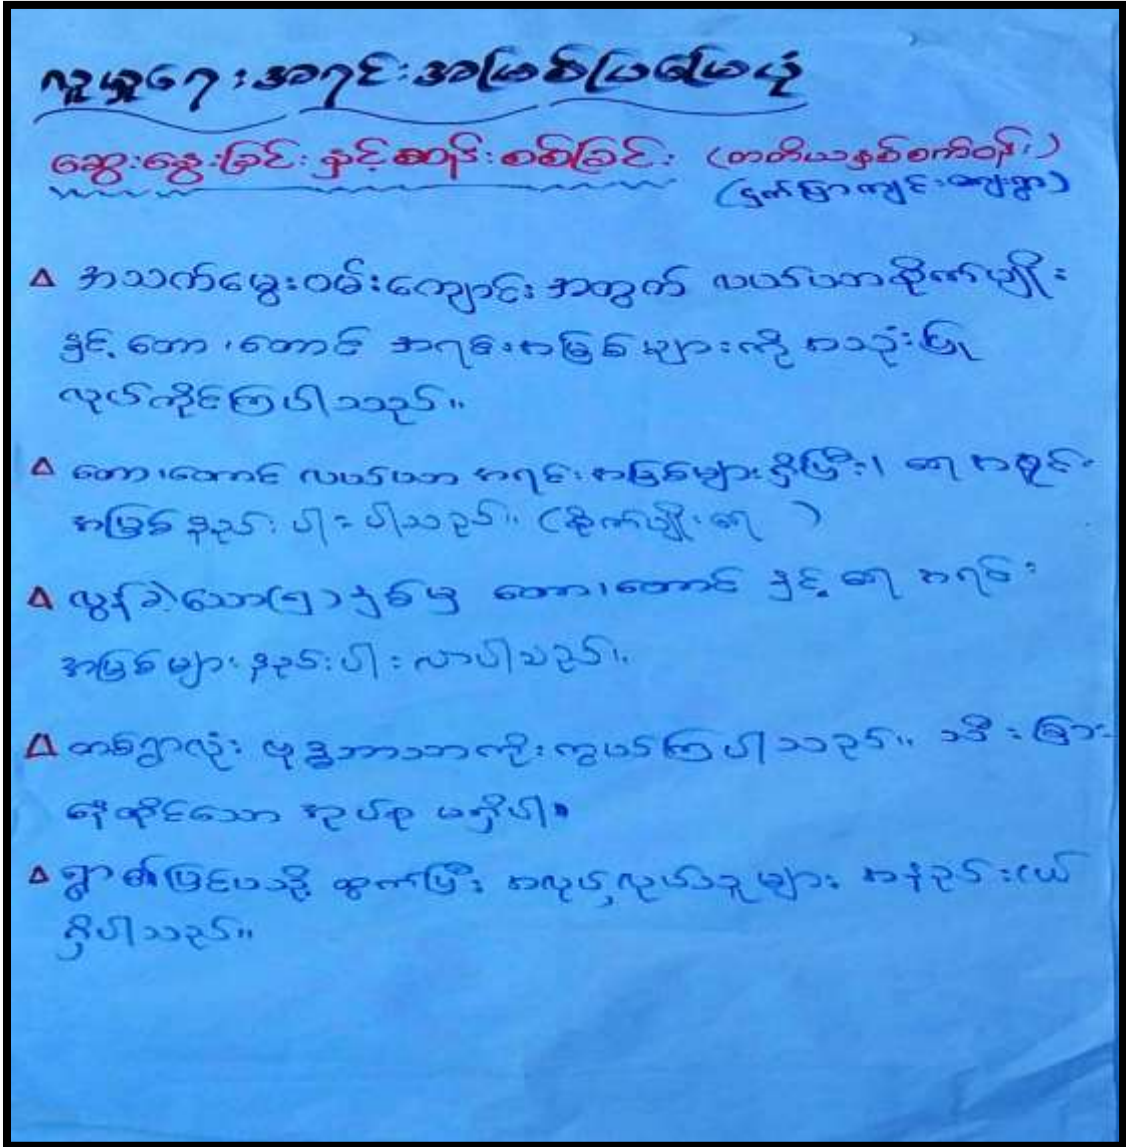 လူမှုရေးအရင်းအမြစ်ပြမြေပုံ
ဆွေးနွေးခြင်းနှင့်ဆန်းစစ်ခြင်း (တတိယနှစ်စက်ဝန်း)
(ငှက်ပြာကျင်းကျေးရွာ)
Δ အသက်မွေးဝမ်းကျောင်းအတွက် လယ်ယာစိုက်ပျိုး
နှင့် တော၊တောင် အရင်းအမြစ်များကို အသုံးပြု
လုပ်ကိုင်ကြပါသည်။
Δ တော၊တောင် လယ်ယာ အရင်းအမြစ်များရှိပြီး၊ ရေအရင်း
အမြစ်နည်းပါးပါသည်။ (စိုက်ပျိုးရေ )
Δ လွန်ခဲ့သော(၅)နှစ်မှ တော၊တောင် နှင့် ရေ အရင်း
အမြစ်များနည်းပါးလာပါသည်။
Δ တစ်ရွာလုံး ဗုဒ္ဓဘာသာကိုးကွယ်ကြပါသည်။ သီးခြား
နေထိုင်သော အုပ်စု မရှိပါ။
Δ ရွာ၏ပြင်ပသို့ ထွက်ပြီး အလုပ်လုပ်သူများ အနည်းငယ်
ရှိပါသည်။